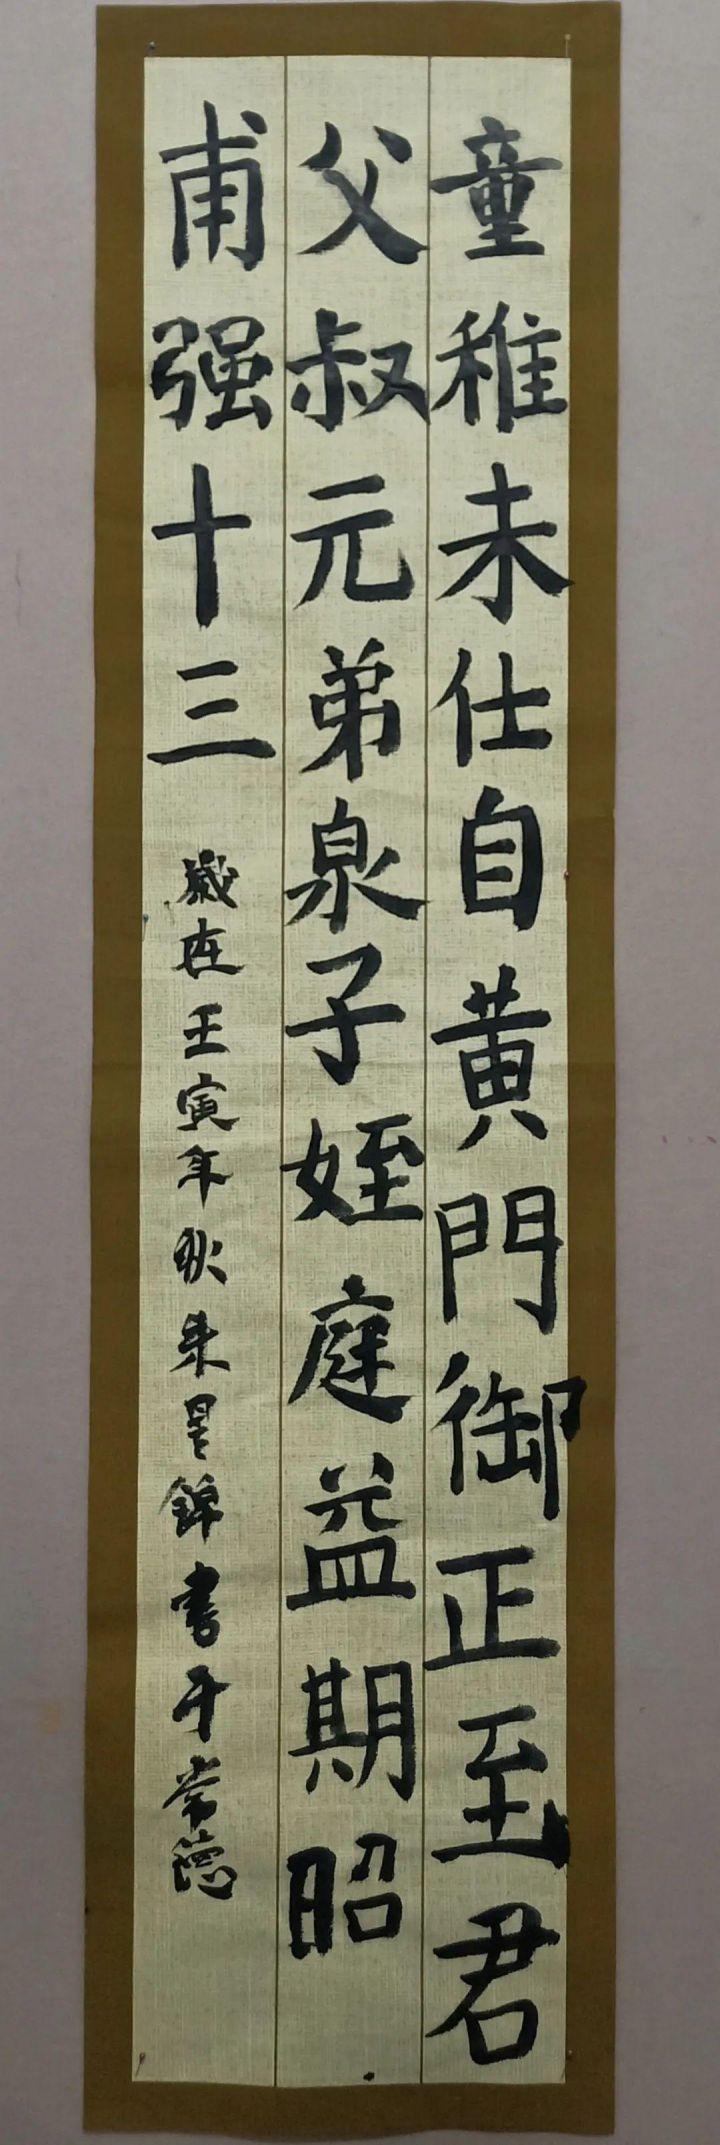 童稚未仕自黄門御正至君
父叔元弟泉子姪庭益期昭
甫强十三
歲在壬寅年秋朱星錦書于常德